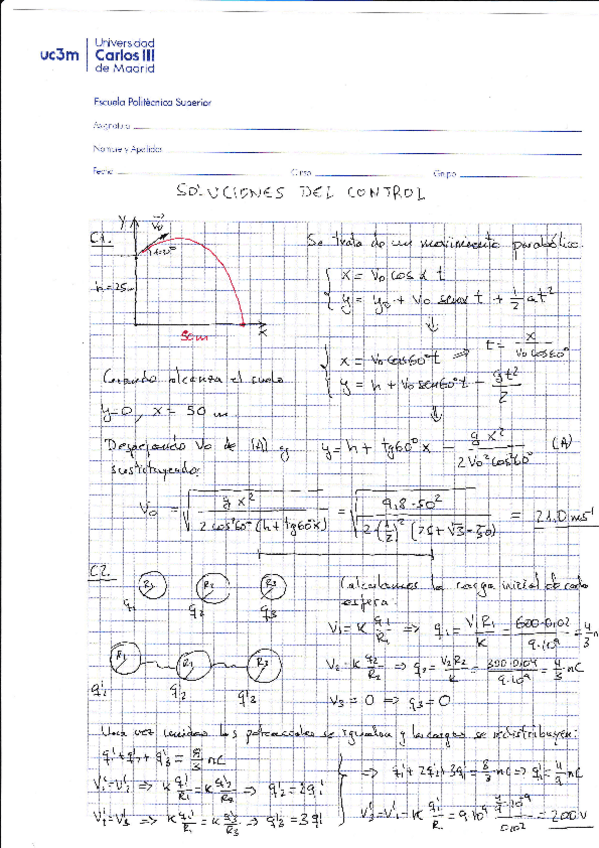 uc3m
Universidad
Carlos III
de Madrid
Escuela Politécnica Superior
Asignatura
Nombre y Apellidos
Fecha Curso Grupo
SOLUCIONES DEL CONTROL
C1.
Y
V₀
h=25m
50m
X
Se trata de un movimiento parabólico.
x = v₀ cos α t
y = y₀ + v₀ sen α t + 1/2 at²
x = v₀ cos60° t ⇒ t = x / v₀ cos60°
y = h + v₀ sen60° t - gt²/2
Cuando alcanza el suelo
y=0, x = 50 m
Despejando v₀ de (A) y
sustituyendo:
y = h + tg60° x - g x² / 2 v₀² cos²60° (A)
V₀ = √(g x² / 2 cos²60° (h + tg60° x)) = √(9,8·50² / 2·(1/2)² (25+√3·50)) = 21.0 ms⁻¹
C2.
R₁ R₂ R₃
q₁ q₂ q₃
R₁ R₂ R₃
q'₁ q'₂ q'₃
Calculamos la carga inicial de cada
esfera.
V₁ = K q₁/R₁ ⇒ q₁ = V₁R₁/K = 600·0,02 / 9·10⁹ = 4/3 n
V₂ = K q₂/R₂ ⇒ q₂ = V₂R₂/K = 300·0,04 / 9·10⁹ = 4/3 nC
V₃ = 0 ⇒ q₃ = 0
Una vez unidas los potenciales se igualan y las cargas se redistribuyen:
q'₁ + q'₂ + q'₃ = 8/3 nC
V'₁ = V'₂ ⇒ K q'₁/R₁ = K q'₂/R₂ ⇒ q'₂ = 2q'₁
V'₁ = V'₃ ⇒ K q'₁/R₁ = K q'₃/R₃ ⇒ q'₃ = 3q'₁
⇒ q'₁ + 2q'₁ + 3q'₁ = 8/3 nC ⇒ q'₁ = 4/9 nC
V'₃ = V'₁ = K q'₁/R₁ = 9·10⁹ 4/9·10⁻⁹ / 0,02 = 200 V